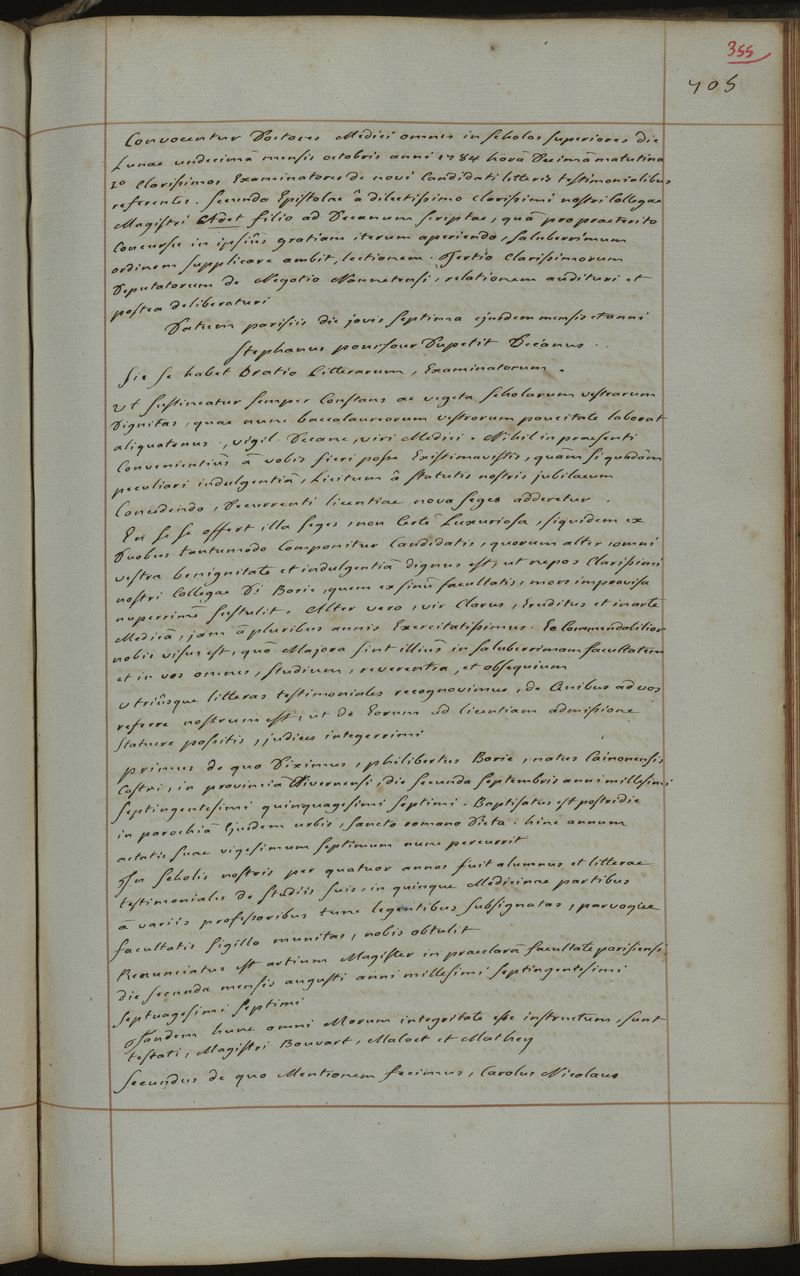 355
705
Convocentur Doctores Medici omnes in scholas superiores die
Lunae undecimâ mensis octobris anni 1784 horâ Decimâ matutinâ
1o Clarissimos Examinatores de novi Candidati litteris testimonialibus
referentes. secundo Epistolae â dilectissimo clarissimi nostri Collegae
Magistri Adet filio ad Decanum scriptae, quâ pro praeterito
Concursu in ipsiûs gratiam iterum aperiendo, saluberrimum
ordinem supplicare ambit, lectionem. Tertio Clarissimorum
Deputatorum de Negotio Nannetensi, relationem audituri et
postea deliberaturi
Datum parisiis die jovis septima ejusdem mensis et anni
Stephanus pourfour Dupetit Decanus..
Sic se habet Oratio Litterarum, Examinatorum.
Ut sustineatur semper Constans ac vegeta scholarum vestrarum
Dignitas, quae nunc baccalaureorum vestrorum paucitate laborat
aliquatenus, vigil. Decane, viri Medici. Nihil in praesenti
Convenientiûs â vobis fieri posse Existimavistis, quâm si quâdam
peculiari indulgentiâ, Licitum â statutis nostris jubilaeum
Concedendo, Decurrenti licentiae nova seges adderetur.
En se se offert illa seges, non Certè Luxuriosa, siquidem ex
Duobus tantumodo Componitur Candidatis, quorum alter omni
vestra benignitate et indulgentiâ dignus est, ut nepos Clarissimi
nostri Collegae Di Borie, quem ex sinû facultatis, mors improvisa
nuperrimè sustulit. Alter vero, vir Clarus, Eruditus et in arte
Medicâ, jam â pluribus annis Exercitatissimus. Eo Commendabilior
nobis visus est, quô Majora sint illius in saluberrimam facultatem
et in vos omnes, studium, reverentia, et obsequium
Utriûsque litteras testimoniales recognovimus, de Quibus ad vos
referre nostrum est, ut de Eorum ad licentiam admissione
statuere possitis, judices integerrimi
primus de quo Diximus, philibertus Borie, natus Cainonensis
Castri, in provinciâ Nivernensi, die secunda septembris anni millesimi
septingentesimi quinquagesimi septimi. Baptisatus est postridie
in parochiâ Ejusdem urbis, sancto romano Dicta. hinc annum
aetatis suae vigesimum septimum nunc percurrit
In scholis nostris per quatuor annos fuit alumnus et litteras
testimoniales de studiis suis, in quinque Medicinae partibus
â variis professoribus tunc legentibus subsignatas, parvoque
facultatis sigillo munitas, nobis obtulit
Renunciatus est artium Magister in praeclarâ facultate parisiensi
die secunda mensis augusti anni millesimi septingentesimi
septuagesimi septimi
Tandem hunc omni Morum integritate esse instructum, sunt
testati, Magistri Bouvart, Maloet et Mathey
Secundus de quo Mentionem fecimus, Carolus Nicolaus